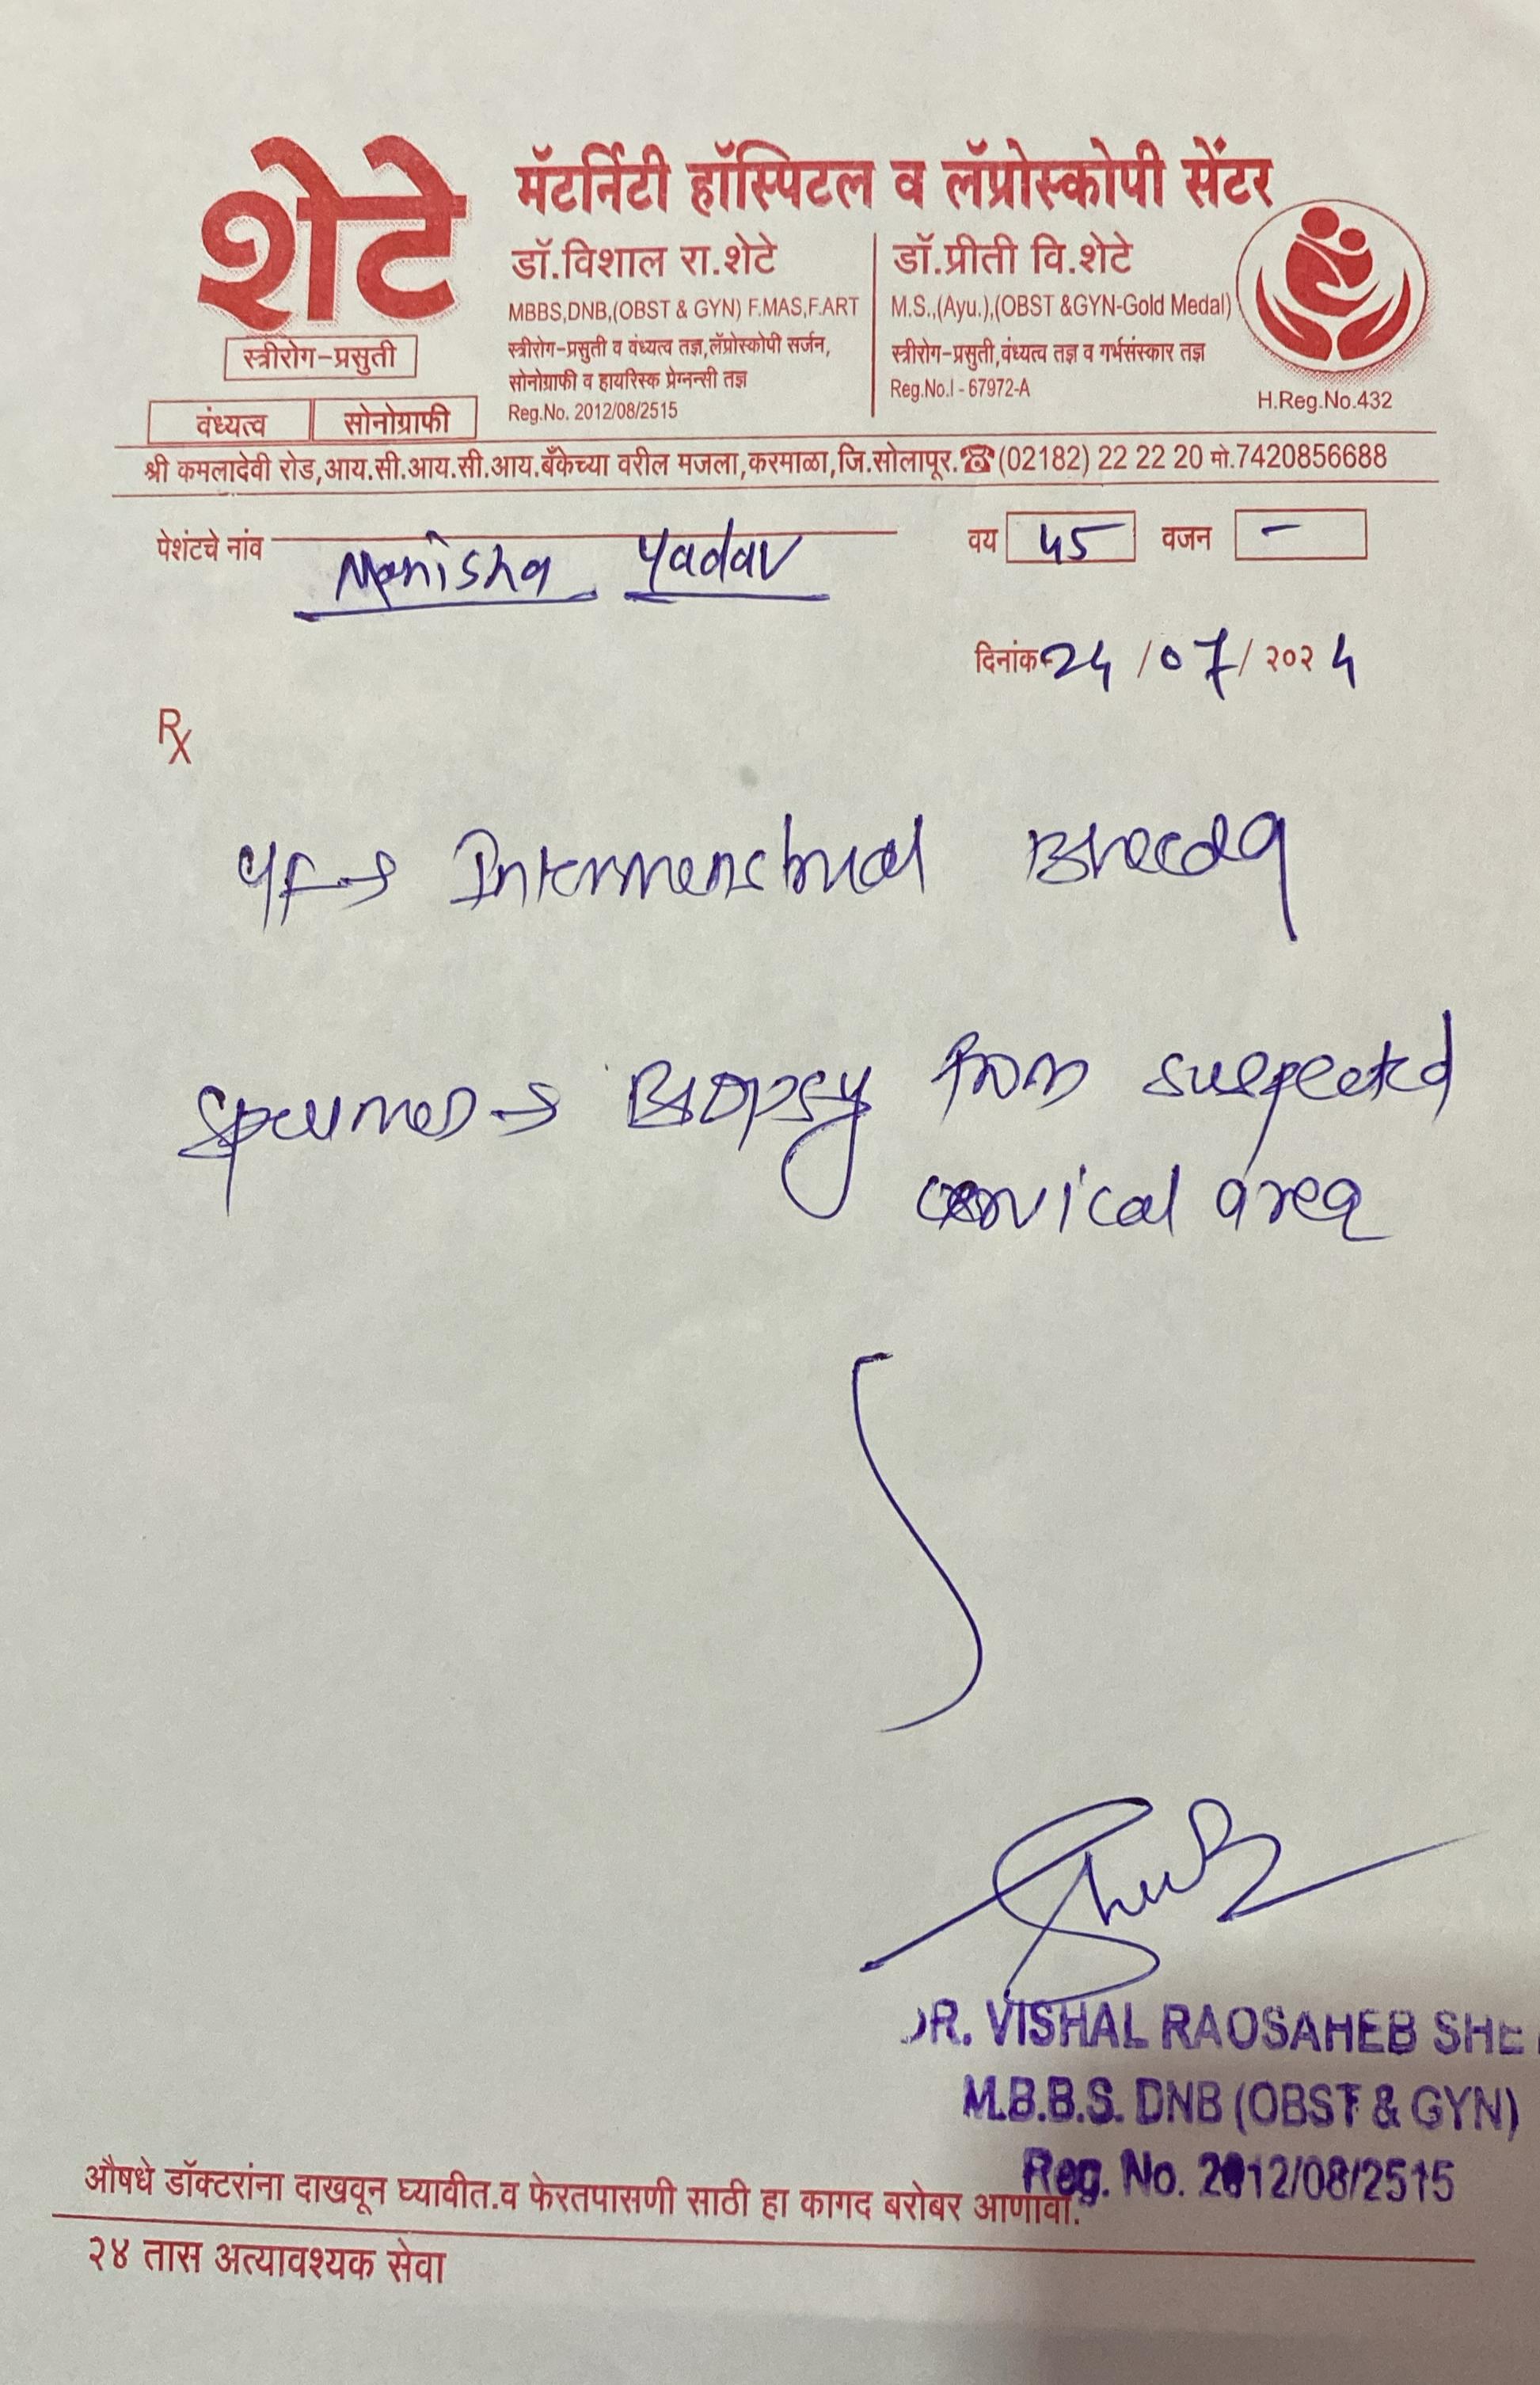 शेटे
मॅटर्निटी हॉस्पिटल व लॅप्रोस्कोपी सेंटर
स्त्रीरोग-प्रसुती
वंध्यत्व सोनोग्राफी
डॉ.विशाल रा.शेटे
MBBS,DNB,(OBST & GYN) F.MAS,F.ART
स्त्रीरोग-प्रसुती व वंध्यत्व तज्ञ,लॅप्रोस्कोपी सर्जन,
सोनोग्राफी व हायरिस्क प्रेग्नन्सी तज्ञ
Reg.No. 2012/08/2515
डॉ.प्रीती वि.शेटे
M.S.,(Ayu.),(OBST &GYN-Gold Medal)
स्त्रीरोग-प्रसुती,वंध्यत्व तज्ञ व गर्भसंस्कार तज्ञ
Reg.No.I - 67972-A
H.Reg.No.432
श्री कमलादेवी रोड,आय.सी.आय.सी.आय.बँकेच्या वरील मजला,करमाळा,जि.सोलापूर.☎(02182) 22 22 20 मो.7420856688
पेशंटचे नांव Manisha Yadav वय 45 वजन -
दिनांक 24/07/२०२4
Rx
Intermenstrual
specimen → Biopsy from suspected
cervical area
DR. VISHAL RAOSAHEB
M.B.B.S. DNB (OBST & GYN)
Reg. No. 2012/08/2515
औषधे डॉक्टरांना दाखवून घ्यावीत.व फेरतपासणी साठी हा कागद बरोबर आणावा.
२४ तास अत्यावश्यक सेवा